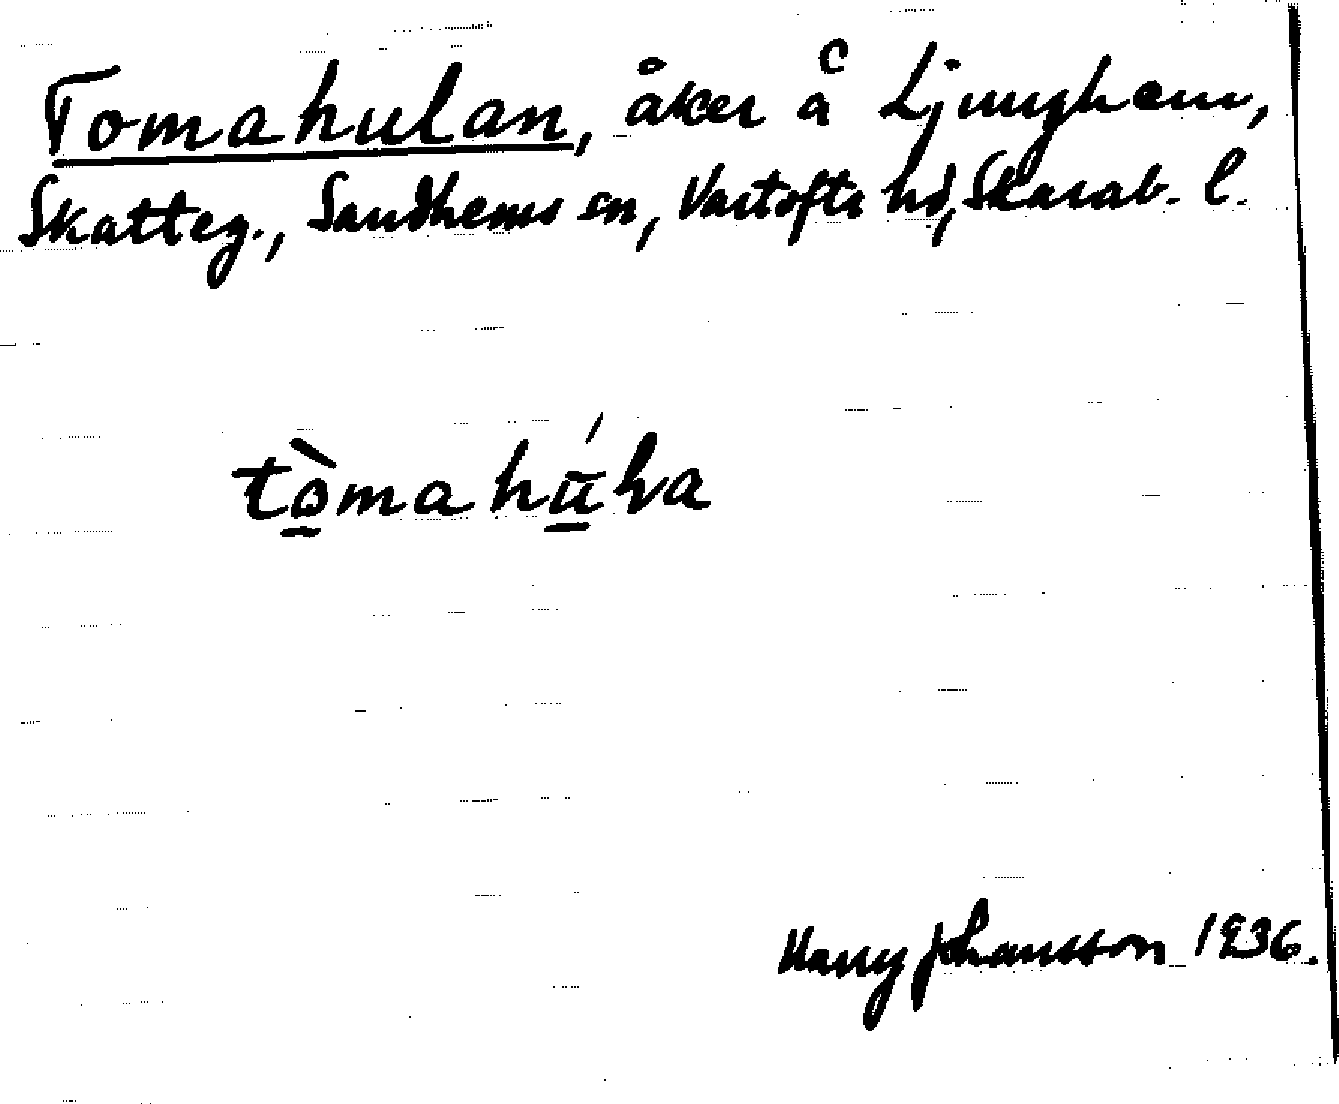 Tomahulan, åker å Ljunghem,
Skatteg., Sandhems sn, Vartofta hd, Skarab. l.
tò̱mahū̱́lva
Harry Johansson 1936.